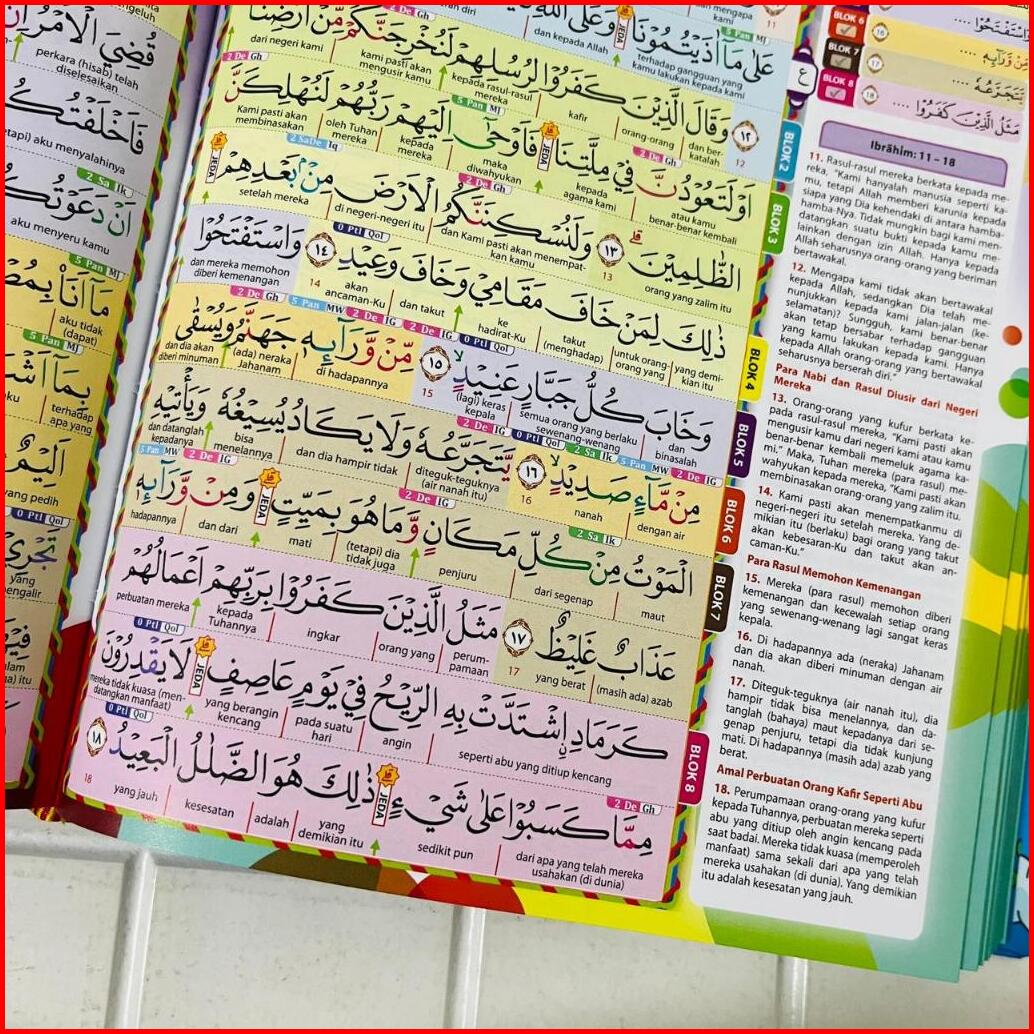 عَلٰى مَآ اٰذَيْتُمُوْنَا وَعَلَى اللّٰهِ
5 Pan MJ
terhadap gangguan yang kamu lakukan kepada kami
dan kepada Allah
JEDA
2 De Gh
وَقَالَ الَّذِيْنَ كَفَرُوْا لِرُسُلِهِمْ لَنُخْرِجَنَّكُمْ مِّنْ اَرْضِنَآ
١٢
12
dan berkatalah
orang-orang
kafir
kepada rasul-rasul mereka
kami pasti akan mengusir kamu
dari negeri kami
اَوْ لَتَعُوْدُنَّ فِيْ مِلَّتِنَا فَاَوْحٰٓى اِلَيْهِمْ رَبُّهُمْ لَنُهْلِكَنَّ
2 De Gh
5 Pan MJ
2 De Gh
atau kamu benar-benar kembali
kepada agama kami
JEDA
maka diwahyukan
kepada mereka
oleh Tuhan mereka
Kami pasti akan membinasakan
الظّٰلِمِيْنَ ١٣ وَلَنُسْكِنَنَّكُمُ الْاَرْضَ مِنْۢ بَعْدِهِمْ
2 De Gh
2 SaDe Iq
orang yang zalim itu
13
dan Kami pasti akan menempatkan kamu
di negeri-negeri itu
setelah mereka
JEDA
ذٰلِكَ لِمَنْ خَافَ مَقَامِيْ وَخَافَ وَعِيْدِ ١٤ وَاسْتَفْتَحُوْا
0 Ptl Qol
yang demikian itu
untuk orang yang
takut (menghadap)
ke hadirat-Ku
dan takut
akan ancaman-Ku
14
dan mereka memohon diberi kemenangan
وَخَابَ كُلُّ جَبَّارٍ عَنِيْدٍ ١٥ مِّنْ وَّرَاۤىِٕهٖ جَهَنَّمُ وَيُسْقٰى
0 Ptl Qol
2 De IG
2 De IG
5 Pan MW
2 De Gh
dan binasalah
semua orang yang berlaku sewenang-wenang
(lagi) keras kepala
15
di hadapannya
(ada) neraka Jahanam
dan dia akan diberi minuman
مِنْ مَّاۤءٍ صَدِيْدٍ ١٦ يَّتَجَرَّعُهٗ وَلَا يَكَادُ يُسِيْغُهٗ وَيَأْتِيْهِ
2 De IG
5 Pan MW
2 Sa Ik
0 Ptl Qol
2 De IG
dengan air
nanah
16
diteguk-teguknya (air nanah itu)
dan dia hampir tidak
bisa menelannya
dan datanglah kepadanya
الْمَوْتُ مِنْ كُلِّ مَكَانٍ وَّمَا هُوَ بِمَيِّتٍ وَمِنْ وَّرَاۤىِٕهٖ
2 Sa Ik
2 De IG
2 De IG
5 Pan MW
maut
dari segenap
penjuru
(tetapi) dia tidak juga
mati
JEDA
dan dari
hadapannya
عَذَابٌ غَلِيْظٌ ١٧ مَثَلُ الَّذِيْنَ كَفَرُوْا بِرَبِّهِمْ اَعْمَالُهُمْ
(masih ada) azab
yang berat
17
perumpamaan
orang yang
ingkar
kepada Tuhannya
perbuatan mereka
كَرَمَادِ ۨاشْتَدَّتْ بِهِ الرِّيْحُ فِيْ يَوْمٍ عَاصِفٍ لَا يَقْدِرُوْنَ
0 Ptl Qol
seperti abu yang ditiup kencang
angin
pada suatu hari
yang berangin kencang
JEDA
mereka tidak kuasa (mendatangkan manfaat)
مِمَّا كَسَبُوْا عَلٰى شَيْءٍ ذٰلِكَ هُوَ الضَّلٰلُ الْبَعِيْدُ ١٨
2 De Gh
0 Ptl Qol
dari apa yang telah mereka usahakan (di dunia)
sedikit pun
JEDA
yang demikian itu
adalah
kesesatan
yang jauh
18
BLOK 2
BLOK 3
BLOK 4
BLOK 5
BLOK 6
BLOK 7
BLOK 8
BLOK 6
BLOK 7
BLOK 8
مَثَلُ الَّذِيْنَ كَفَرُوْا ....
Ibrâhîm: 11 – 18
11. Rasul-rasul mereka berkata kepada me-
reka, "Kami hanyalah manusia seperti ka-
mu, tetapi Allah memberi karunia kepada
siapa yang Dia kehendaki di antara hamba-
hamba-Nya. Tidak mungkin bagi kami men-
datangkan suatu bukti kepada kamu me-
lainkan dengan izin Allah. Hanya kepada
Allah seharusnya orang-orang yang beriman
bertawakal.
12. Mengapa kami tidak akan bertawakal
kepada Allah, sedangkan Dia telah me-
nunjukkan kepada kami jalan-jalan (ke-
selamatan)? Sungguh, kami benar-benar
akan tetap bersabar terhadap gangguan
yang kamu lakukan kepada kami. Hanya
kepada Allah orang-orang yang bertawakal
seharusnya berserah diri."
Para Nabi dan Rasul Diusir dari Negeri
Mereka
13. Orang-orang yang kufur berkata ke-
pada rasul-rasul mereka, "Kami pasti akan
mengusir kamu dari negeri kami atau kamu
benar-benar kembali memeluk agama ka-
mi." Maka, Tuhan mereka (para rasul) me-
wahyukan kepada mereka, "Kami pasti akan
membinasakan orang-orang yang zalim itu.
14. Kami pasti akan menempatkanmu di
negeri-negeri itu setelah mereka. Yang de-
mikian itu (berlaku) bagi orang yang takut
akan kebesaran-Ku dan takut akan an-
caman-Ku."
Para Rasul Memohon Kemenangan
15. Mereka (para rasul) memohon diberi
kemenangan dan kecewalah setiap orang
yang sewenang-wenang lagi sangat keras
kepala.
16. Di hadapannya ada (neraka) Jahanam
dan dia akan diberi minuman dengan air
nanah.
17. Diteguk-teguknya (air nanah itu), dia
hampir tidak bisa menelannya, dan da-
tanglah (bahaya) maut kepadanya dari se-
genap penjuru, tetapi dia tidak kunjung
mati. Di hadapannya (masih ada) azab yang
berat.
Amal Perbuatan Orang Kafir Seperti Abu
18. Perumpamaan orang-orang yang kufur
kepada Tuhannya, perbuatan mereka seperti
abu yang ditiup oleh angin kencang pada
saat badai. Mereka tidak kuasa (memperoleh
manfaat) sama sekali dari apa yang telah
mereka usahakan (di dunia). Yang demikian
itu adalah kesesatan yang jauh.
قُضِيَ الْاَمْرُ
perkara (hisab) telah diselesaikan
فَاَخْلَفْتُكُمْ
aku menyalahinya
2 Sa Ik
اَنْ دَعَوْتُكُمْ
aku menyeru kamu
5 Pan MJ
مَآ اَنَا۠
aku tidak (dapat)
5 Pan MJ
بِمَآ
terhadap apa yang
اَلِيْمٌ
yang pedih
0 Ptl Qol
تَجْرِيْ